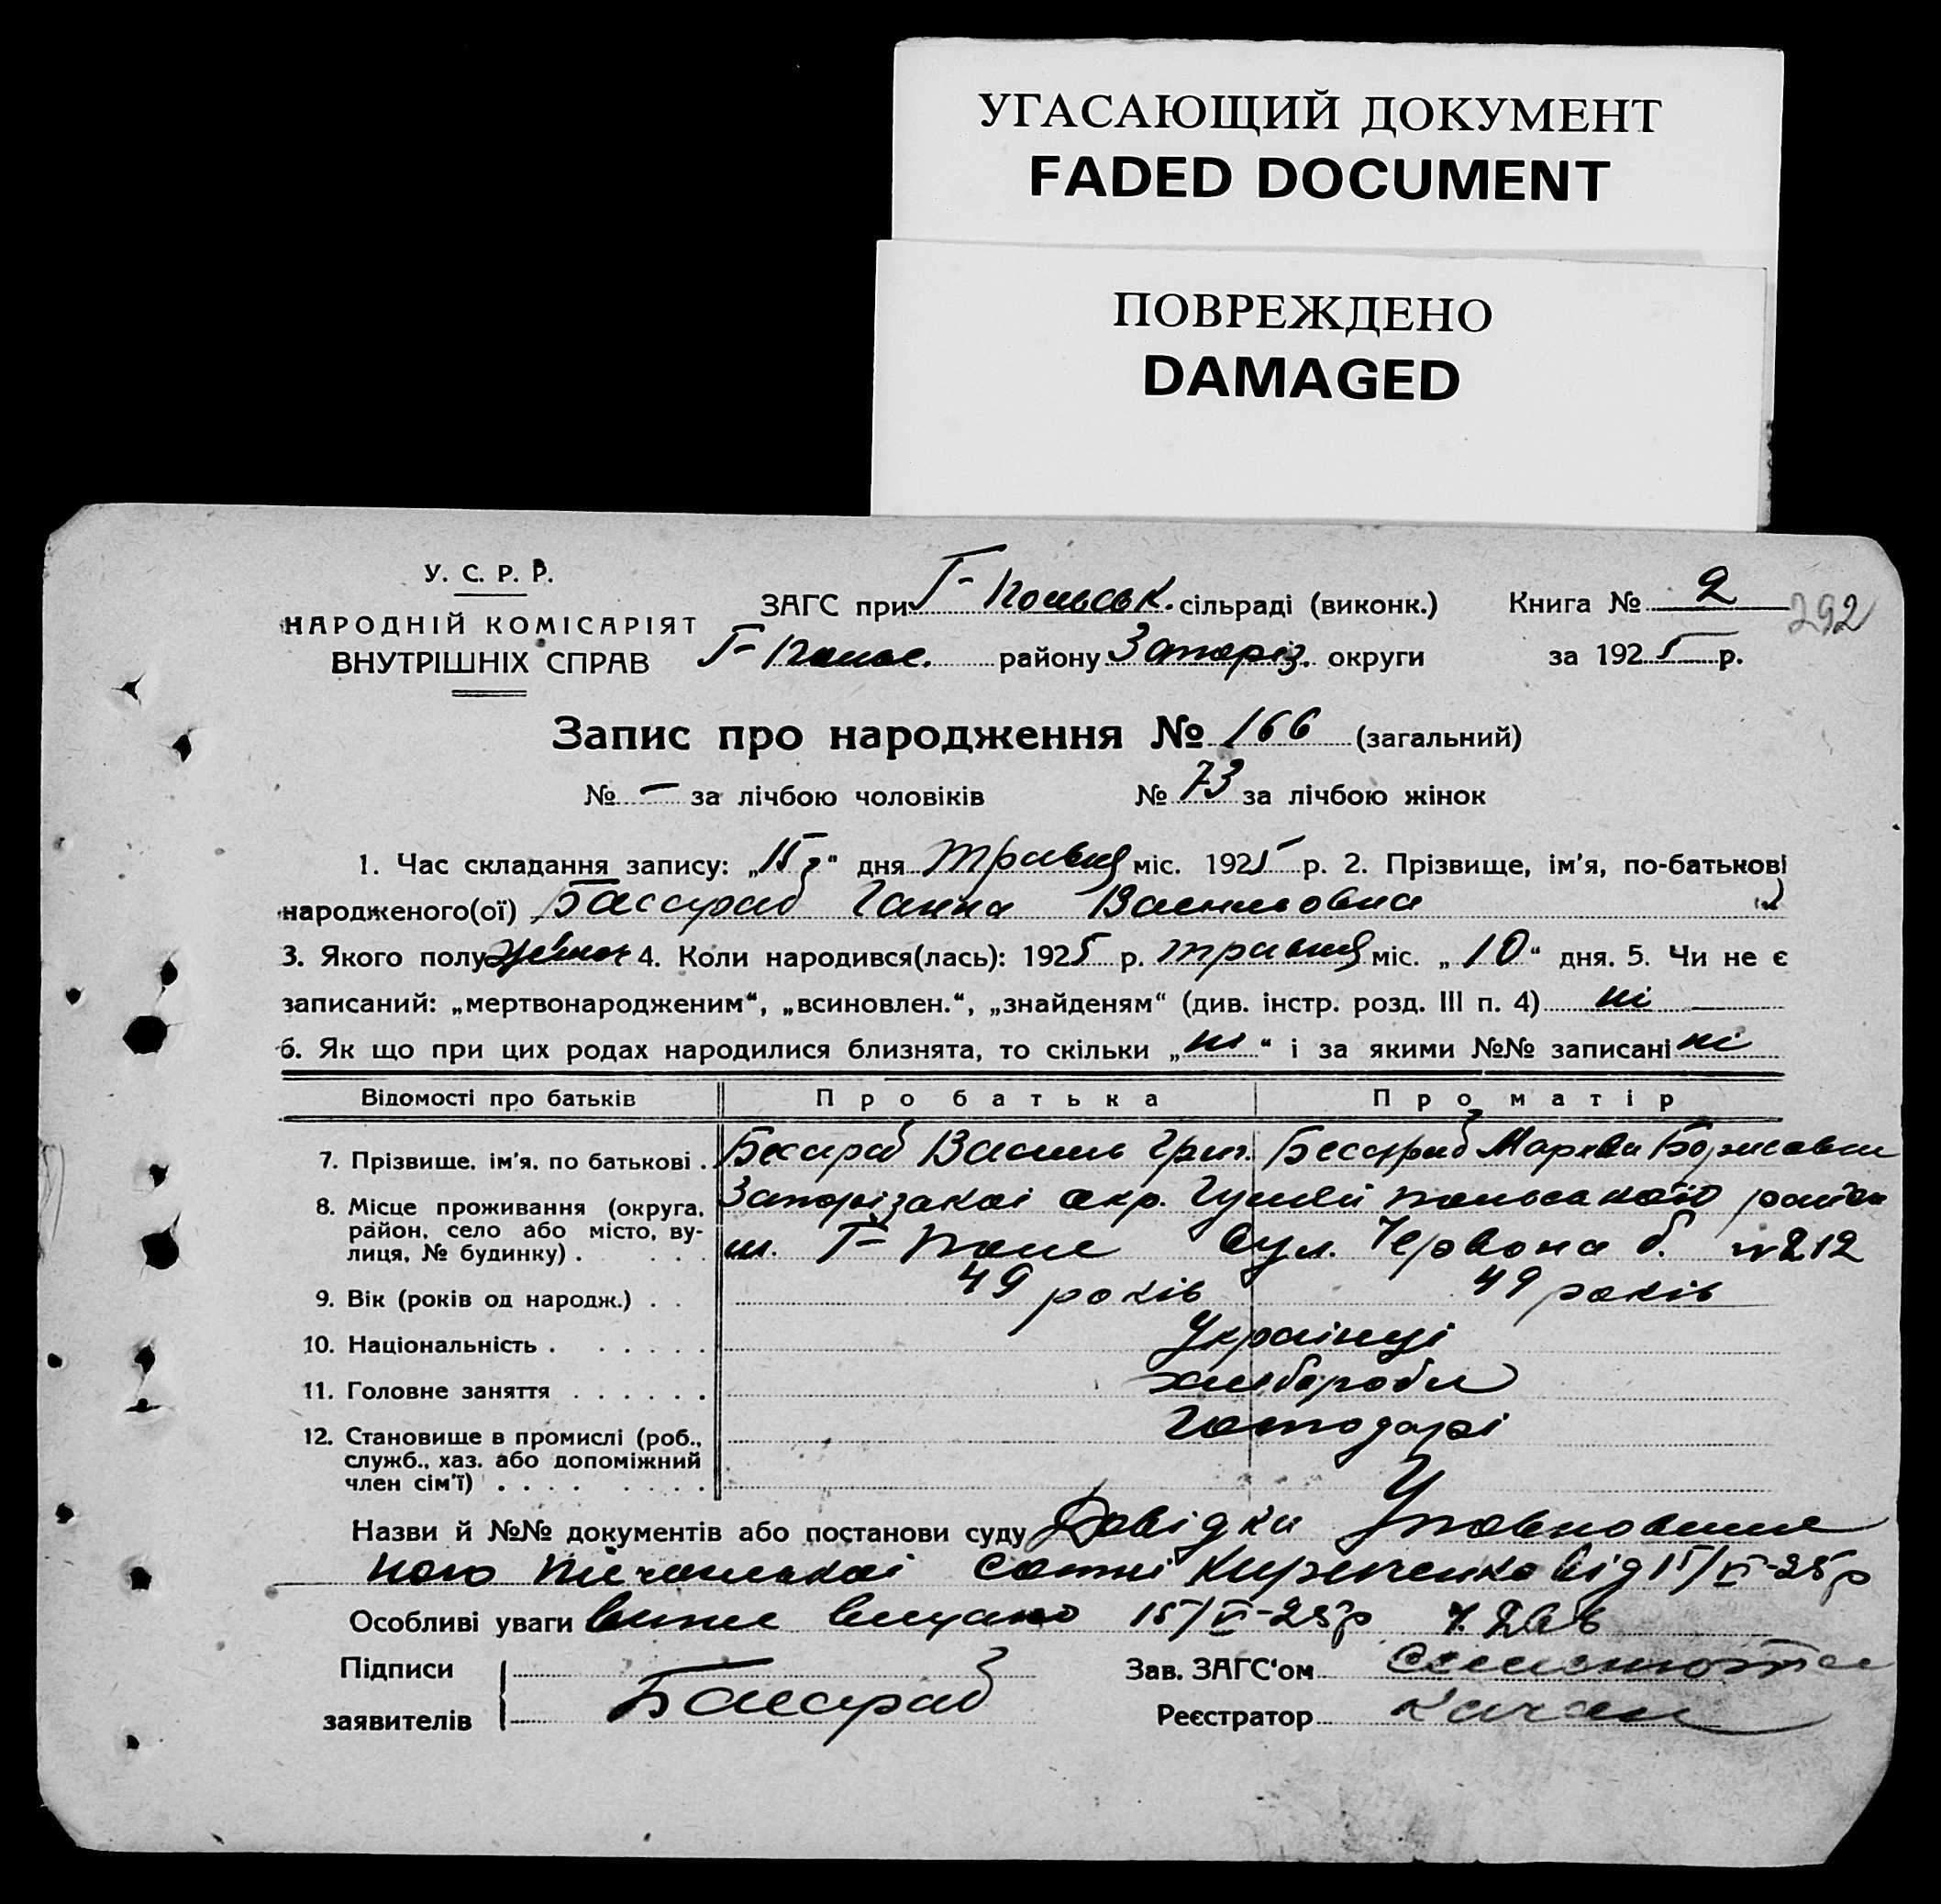 УГАСАЮЩИЙ ДОКУМЕНТ
FADED DOCUMENT
ПОВРЕЖДЕНО
DAMAGED
У. С. Р. Р.
НАРОДНІЙ КОМІСАРІЯТ
ВНУТРІШНІХ СПРАВ
ЗАГС при Г-Польськ. сільраді (виконк.) Книга № 2 292
Г-Польс. району Запоріз. округи за 1925 р.
Запис про народження № 166 (загальний)
№ - за лічбою чоловіків № 73 за лічбою жінок
1. Час складання запису: „15“ дня травня міс. 1925 р. 2. Прізвище, ім'я, по-батькові
народженого(ої) Басараб Ганна Васильовна
3. Якого полу жіноч 4. Коли народився(лась): 1925 р. травня міс. „10“ дня. 5. Чи не є
записаний: „мертвонародженим“, „всиновлен.“, „знайденям“ (див. інстр. розд. III п. 4) ні
6. Як що при цих родах народилися близнята, то скільки „ні“ і за якими №№ записані ні
Відомості про батьків Про батька Про матір
7. Прізвище, ім'я, по батькові . Бесараб Василь Григ. Бесараб Борисовна
8. Місце проживання (округа, район, село або місто, вулиця, № будинку) . . . . Запорізакоі окр. Гуляй польського району
м. Г-Поле вул. Червона б. № 212
9. Вік (років од народж.) . . 49 років 49 років
10. Національність . . . . . . Українці
11. Головне заняття . . . . . . хлібороби
12. Становище в промислі (роб., служб., хаз. або допоміжний член сім'ї) . . . . . . . . Господарі
Назви й №№ документів або постанови суду Довідки Уповноваже
ного сотні Кириченко від 15/V-25р
Особливі уваги 15/V-25р
Підписи Зав. ЗАГС‘ом
заявителів Басараб Реєстратор Качан